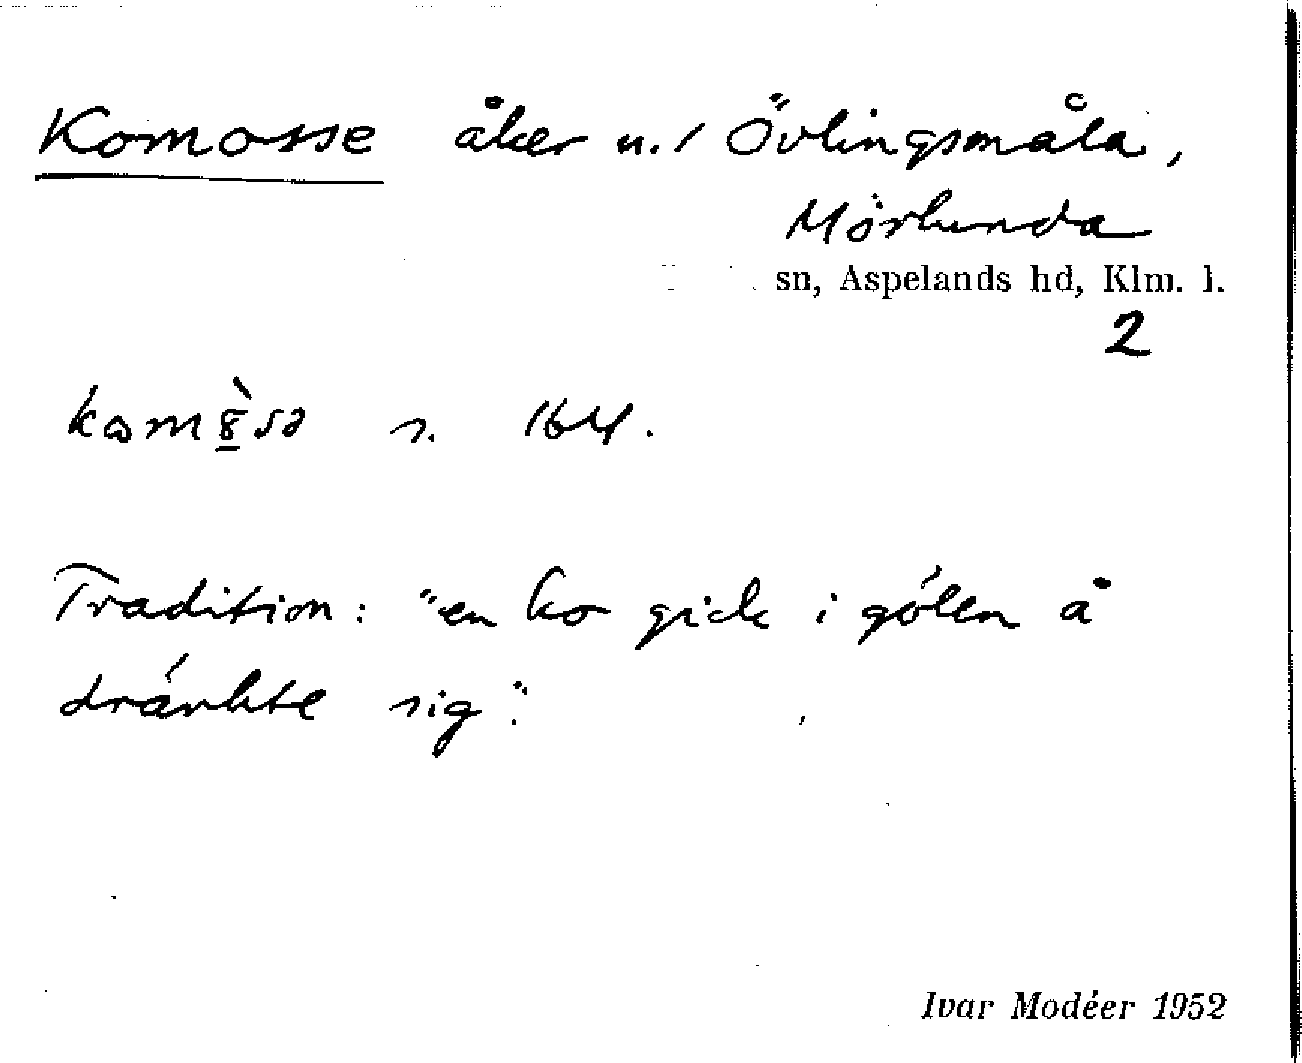 Komosse åker u./ Övlingsmåla,
Mörlunda
sn, Aspelands hd, Klm. l.
2
s. 164.
Tradition: "en ko gick i gölen å
dränkte sig".
Ivar Modéer 1952